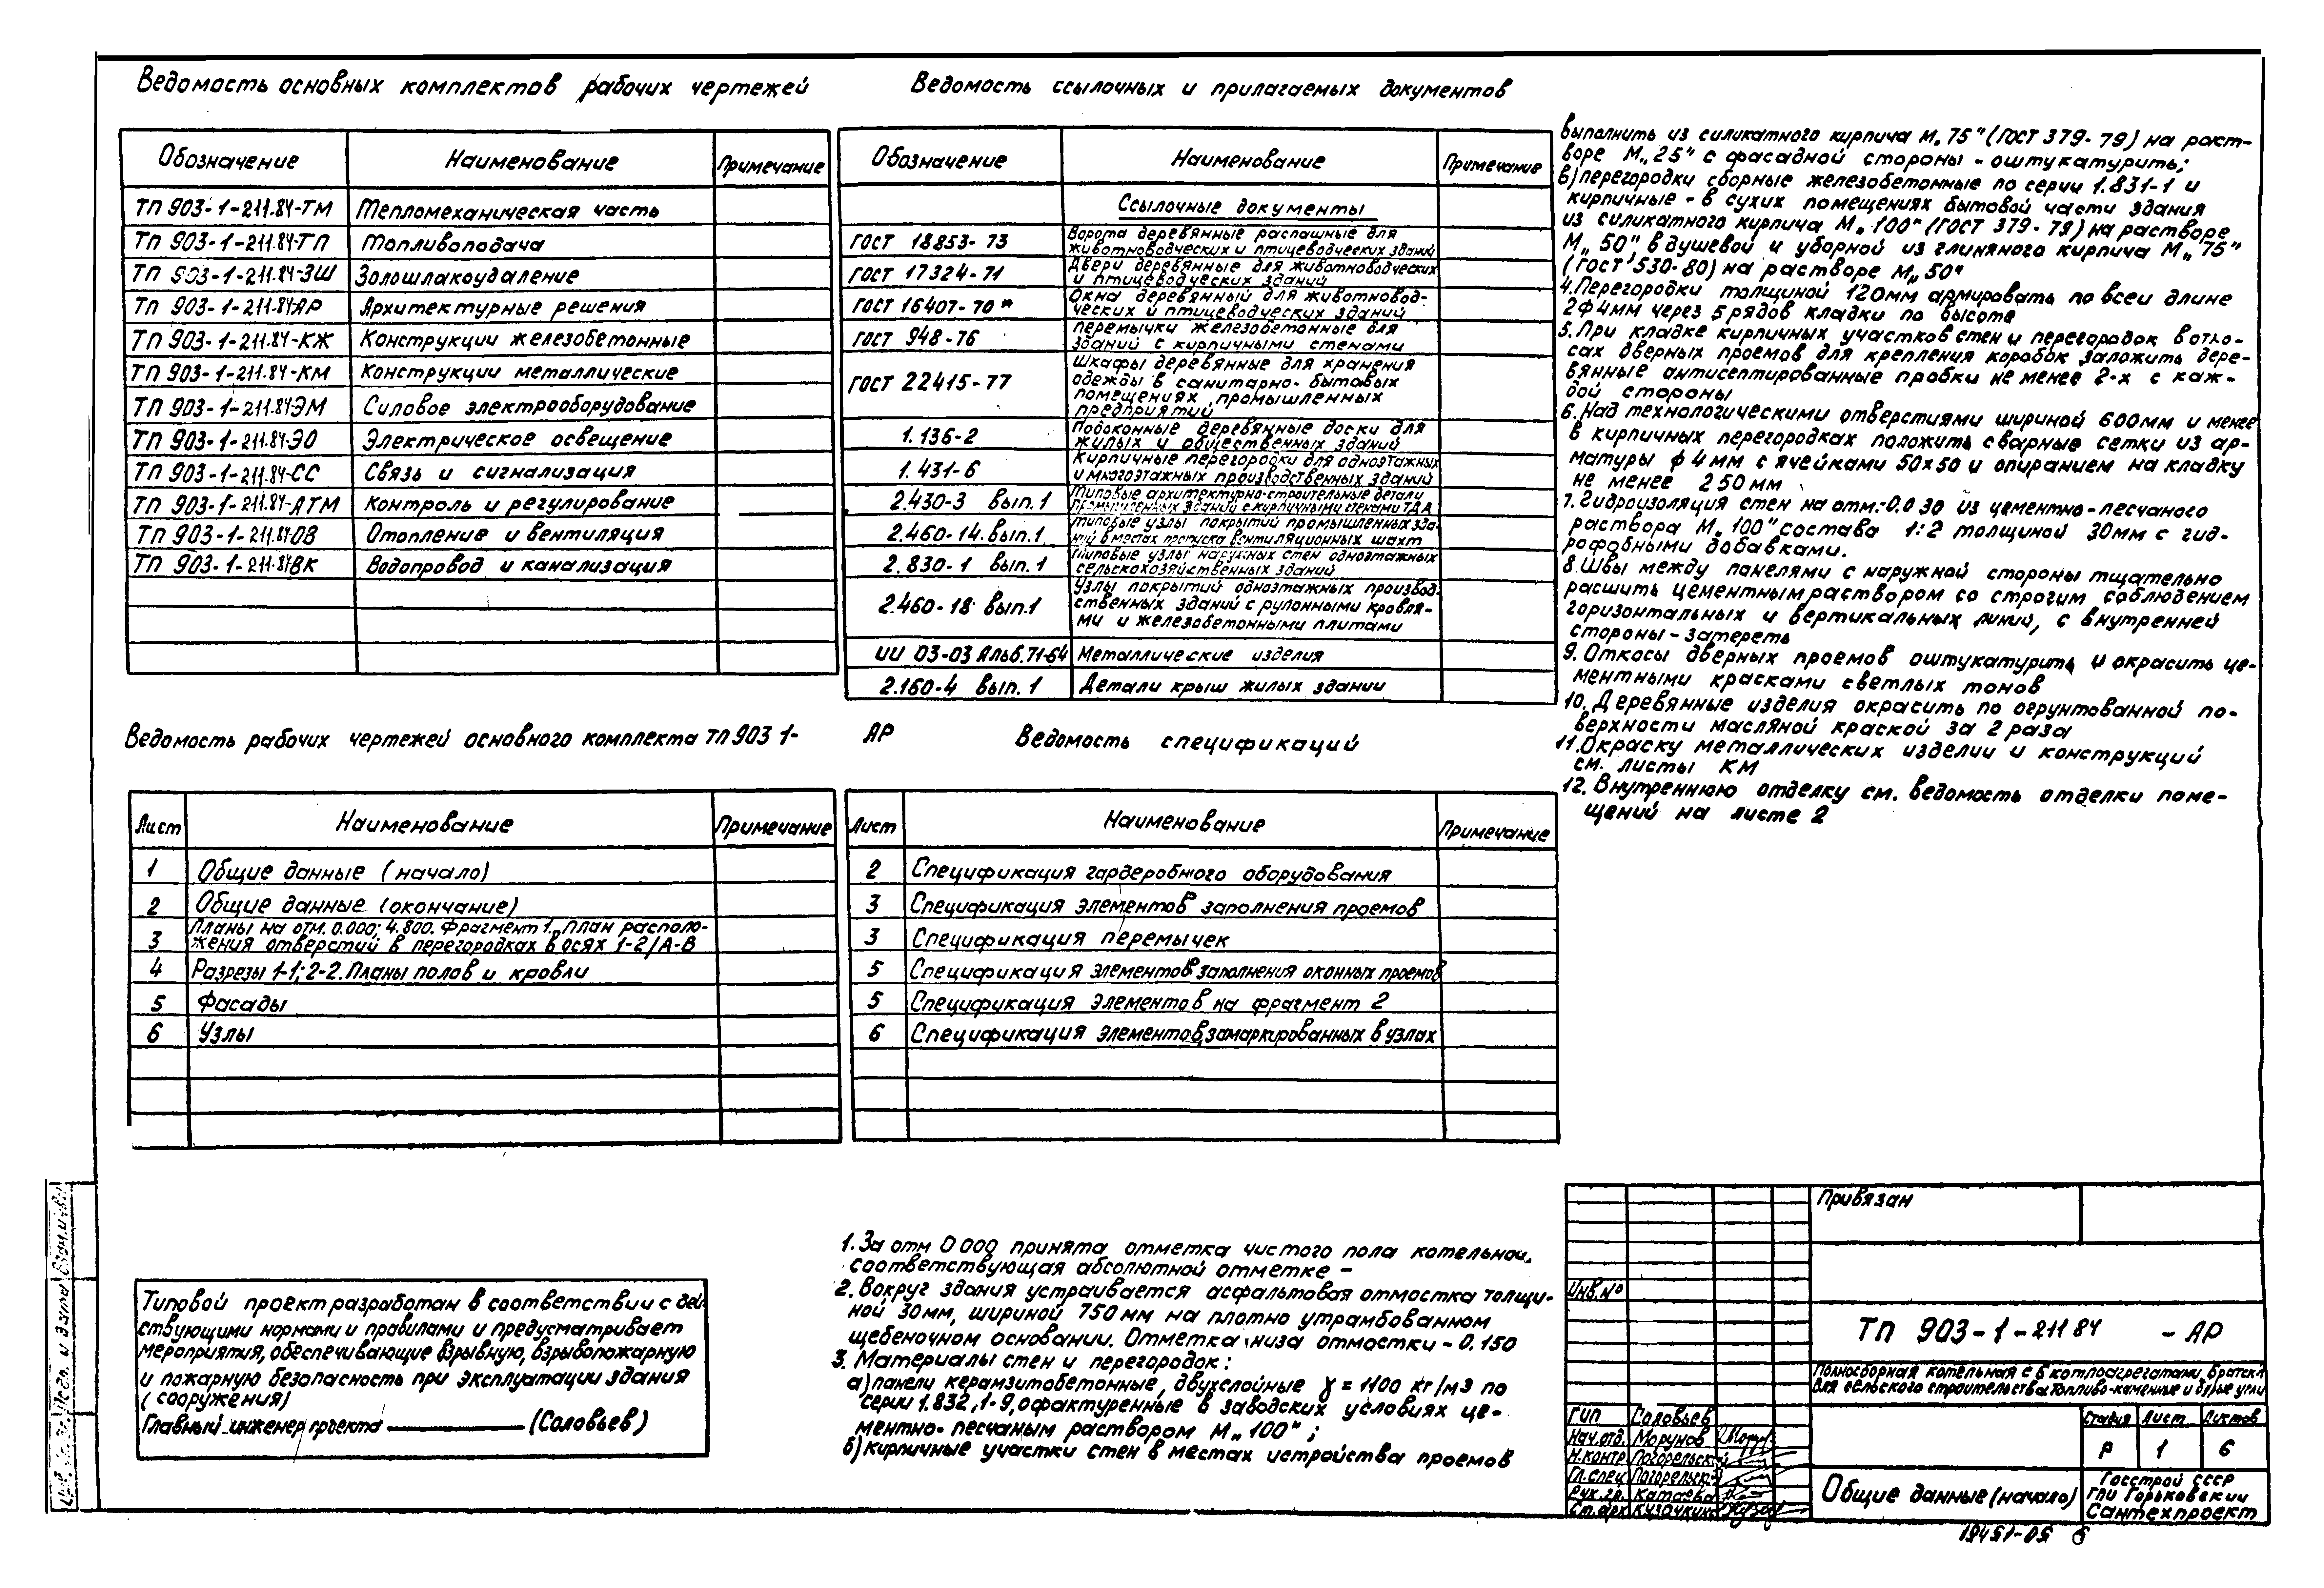 Ведомость основных комплектов рабочих чертежей
Обозначение Наименование Примечание
ТП 903-1-211.84-ТМ Тепломеханическая часть
ТП 903-1-211.84-ТП Топливоподача
ТП 903-1-211.84-ЗШ Золошлакоудаление
ТП 903-1-211.84АР Архитектурные решения
ТП 903-1-211.84-КЖ Конструкции железобетонные
ТП 903-1-211.84-КМ Конструкции металлические
ТП 903-1-211.84ЭМ Силовое электрооборудование
ТП 903-1-211.84-ЭО Электрическое освещение
ТП 903-1-211.84-СС Связь и сигнализация
ТП 903-1-211.84-АТМ Контроль и регулирование
ТП 903-1-211.84ОВ Отопление и вентиляция
ТП 903-1-211.84ВК Водопровод и канализация
Ведомость ссылочных и прилагаемых документов
Обозначение Наименование Примечание
Ссылочные документы
ГОСТ 18853-73 Ворота деревянные распашные для
животноводческих и птицеводческих зданий
ГОСТ 17324-71 Двери деревянные для животноводческих
и птицеводческих зданий
ГОСТ 16407-70* Окна деревянный для животновод-
ческих и птицеводческих зданий
ГОСТ 948-76 перемычки железобетонные для
зданий с кирпичными стенами
ГОСТ 22415-77 Шкафы деревянные для хранения
одежды в санитарно-бытовых
помещениях промышленных
предприятий
1.136-2 Подоконные деревянные доски для
жилых и общественных зданий
1.431-6 Кирпичные перегородки для одноэтажных
и многоэтажных производственных зданий
2.430-3 вып.1 Типовые архитектурно-строительные детали
промышленных зданий с кирпичными стенами ТДА
2.460-14.вып.1 Типовые узлы покрытий промышленных зда-
ний в местах пропуска вентиляционных шахт
2.830-1 вып.1 Типовые узлы наружных стен одноэтажных
сельскохозяйственных зданий
2.460-18 вып.1 Узлы покрытий одноэтажных производ-
ственных зданий с рулонными кровля-
ми и железобетонными плитами
ИИ 03-03 Альб.71-64 Металлические изделия
2.160-4 вып.1 Детали крыш жилых здании
Ведомость рабочих чертежей основного комплекта ТП 903 1- АР
Лист Наименование Примечание
1 Общие данные (начало)
2 Общие данные (окончание)
3 Планы на отм. 0.000; 4.800. Фрагмент 1. План располо-
жения отверстий в перегородках в осях 1-2/А-В
4 Разрезы 1-1; 2-2. Планы полов и кровли
5 Фасады
6 Узлы
Ведомость спецификаций
Лист Наименование Примечание
2 Спецификация гардеробного оборудования
3 Спецификация элементов заполнения проемов
3 Спецификация перемычек
5 Спецификация элементов заполнения оконных проемов
5 Спецификация элементов на фрагмент 2
6 Спецификация элементов, замаркированных в узлах
Типовой проект разработан в соответствии с дей-
ствующими нормами и правилами и предусматривает
мероприятия, обеспечивающие взрывную, взрывопожарную
и пожарную безопасность при эксплуатации здания
(сооружения)
Главный инженер проекта (Соловьев)
1. За отм 0 000 принята отметка чистого пола котельной,
соответствующая абсолютной отметке –
2. Вокруг здания устраивается асфальтовая отмостка толщи-
ной 30мм, шириной 750 мм на плотно утрамбованном
щебеночном основании. Отметка низа отмостки - 0.150
3. Материалы стен и перегородок:
а) панели керамзитобетонные, двухслойные γ = 1100 кг/м3 по
серии 1.832.1-9, офактуренные в заводских условиях це-
ментно-песчаным раствором М„100";
б) кирпичные участки стен в местах устройства проемов
выполнить из силикатного кирпича М„75" (ГОСТ 379-79) на раст-
воре М„25" с фасадной стороны - оштукатурить;
в) перегородки сборные железобетонные по серии 1.831-1 и
кирпичные - в сухих помещениях бытовой части здания
из силикатного кирпича М„100" (ГОСТ 379-79) на растворе
М„50" в душевой и уборной из глиняного кирпича М„75"
(ГОСТ 530-80) на растворе М„50"
4. Перегородки толщиной 120мм армировать по всей длине
2ф4мм через 5 рядов кладки по высоте
5. При кладке кирпичных участков стен и перегородок в отко-
сах дверных проемов для крепления коробок заложить дере-
вянные антисептированные пробки не менее 2-х с каж-
дой стороны
6. Над технологическими отверстиями шириной 600мм и менее
в кирпичных перегородках положить сварные сетки из ар-
матуры ф 4 мм с ячейками 50х50 и опиранием на кладку
не менее 250мм
7. Гидроизоляция стен на отм.-0.030 из цементно-песчаного
раствора М„100" состава 1:2 толщиной 30мм с гид-
рофобными добавками.
8. Швы между панелями с наружной стороны тщательно
расшить цементным раствором со строгим соблюдением
горизонтальных и вертикальных линий, с внутренней
стороны - затереть
9. Откосы дверных проемов оштукатурить и окрасить це-
ментными красками светлых тонов
10. Деревянные изделия окрасить по огрунтованной по-
верхности масляной краской за 2 раза
11. Окраску металлических изделии и конструкций
см. листы КМ
12. Внутреннюю отделку см. ведомость отделки поме-
щений на листе 2
Привязан
Инв.№
ТП 903-1-211 84 -АР
Полносборная котельная с 6 котлоагрегатами, Братск
для сельского строительства. Топливо-каменные и бурые угли
ГИП Соловьев
Нач.отд. Морунов
Н.контр. Погорельский
Гл.спец. Погорельск
Рук.гр. Катаева
Ст.арх.
Стадия Лист Листов
Р 1 6
Общие данные (начало)
Госстрой СССР
ГПИ Горьковский
Сантехпроект
19451-05 6